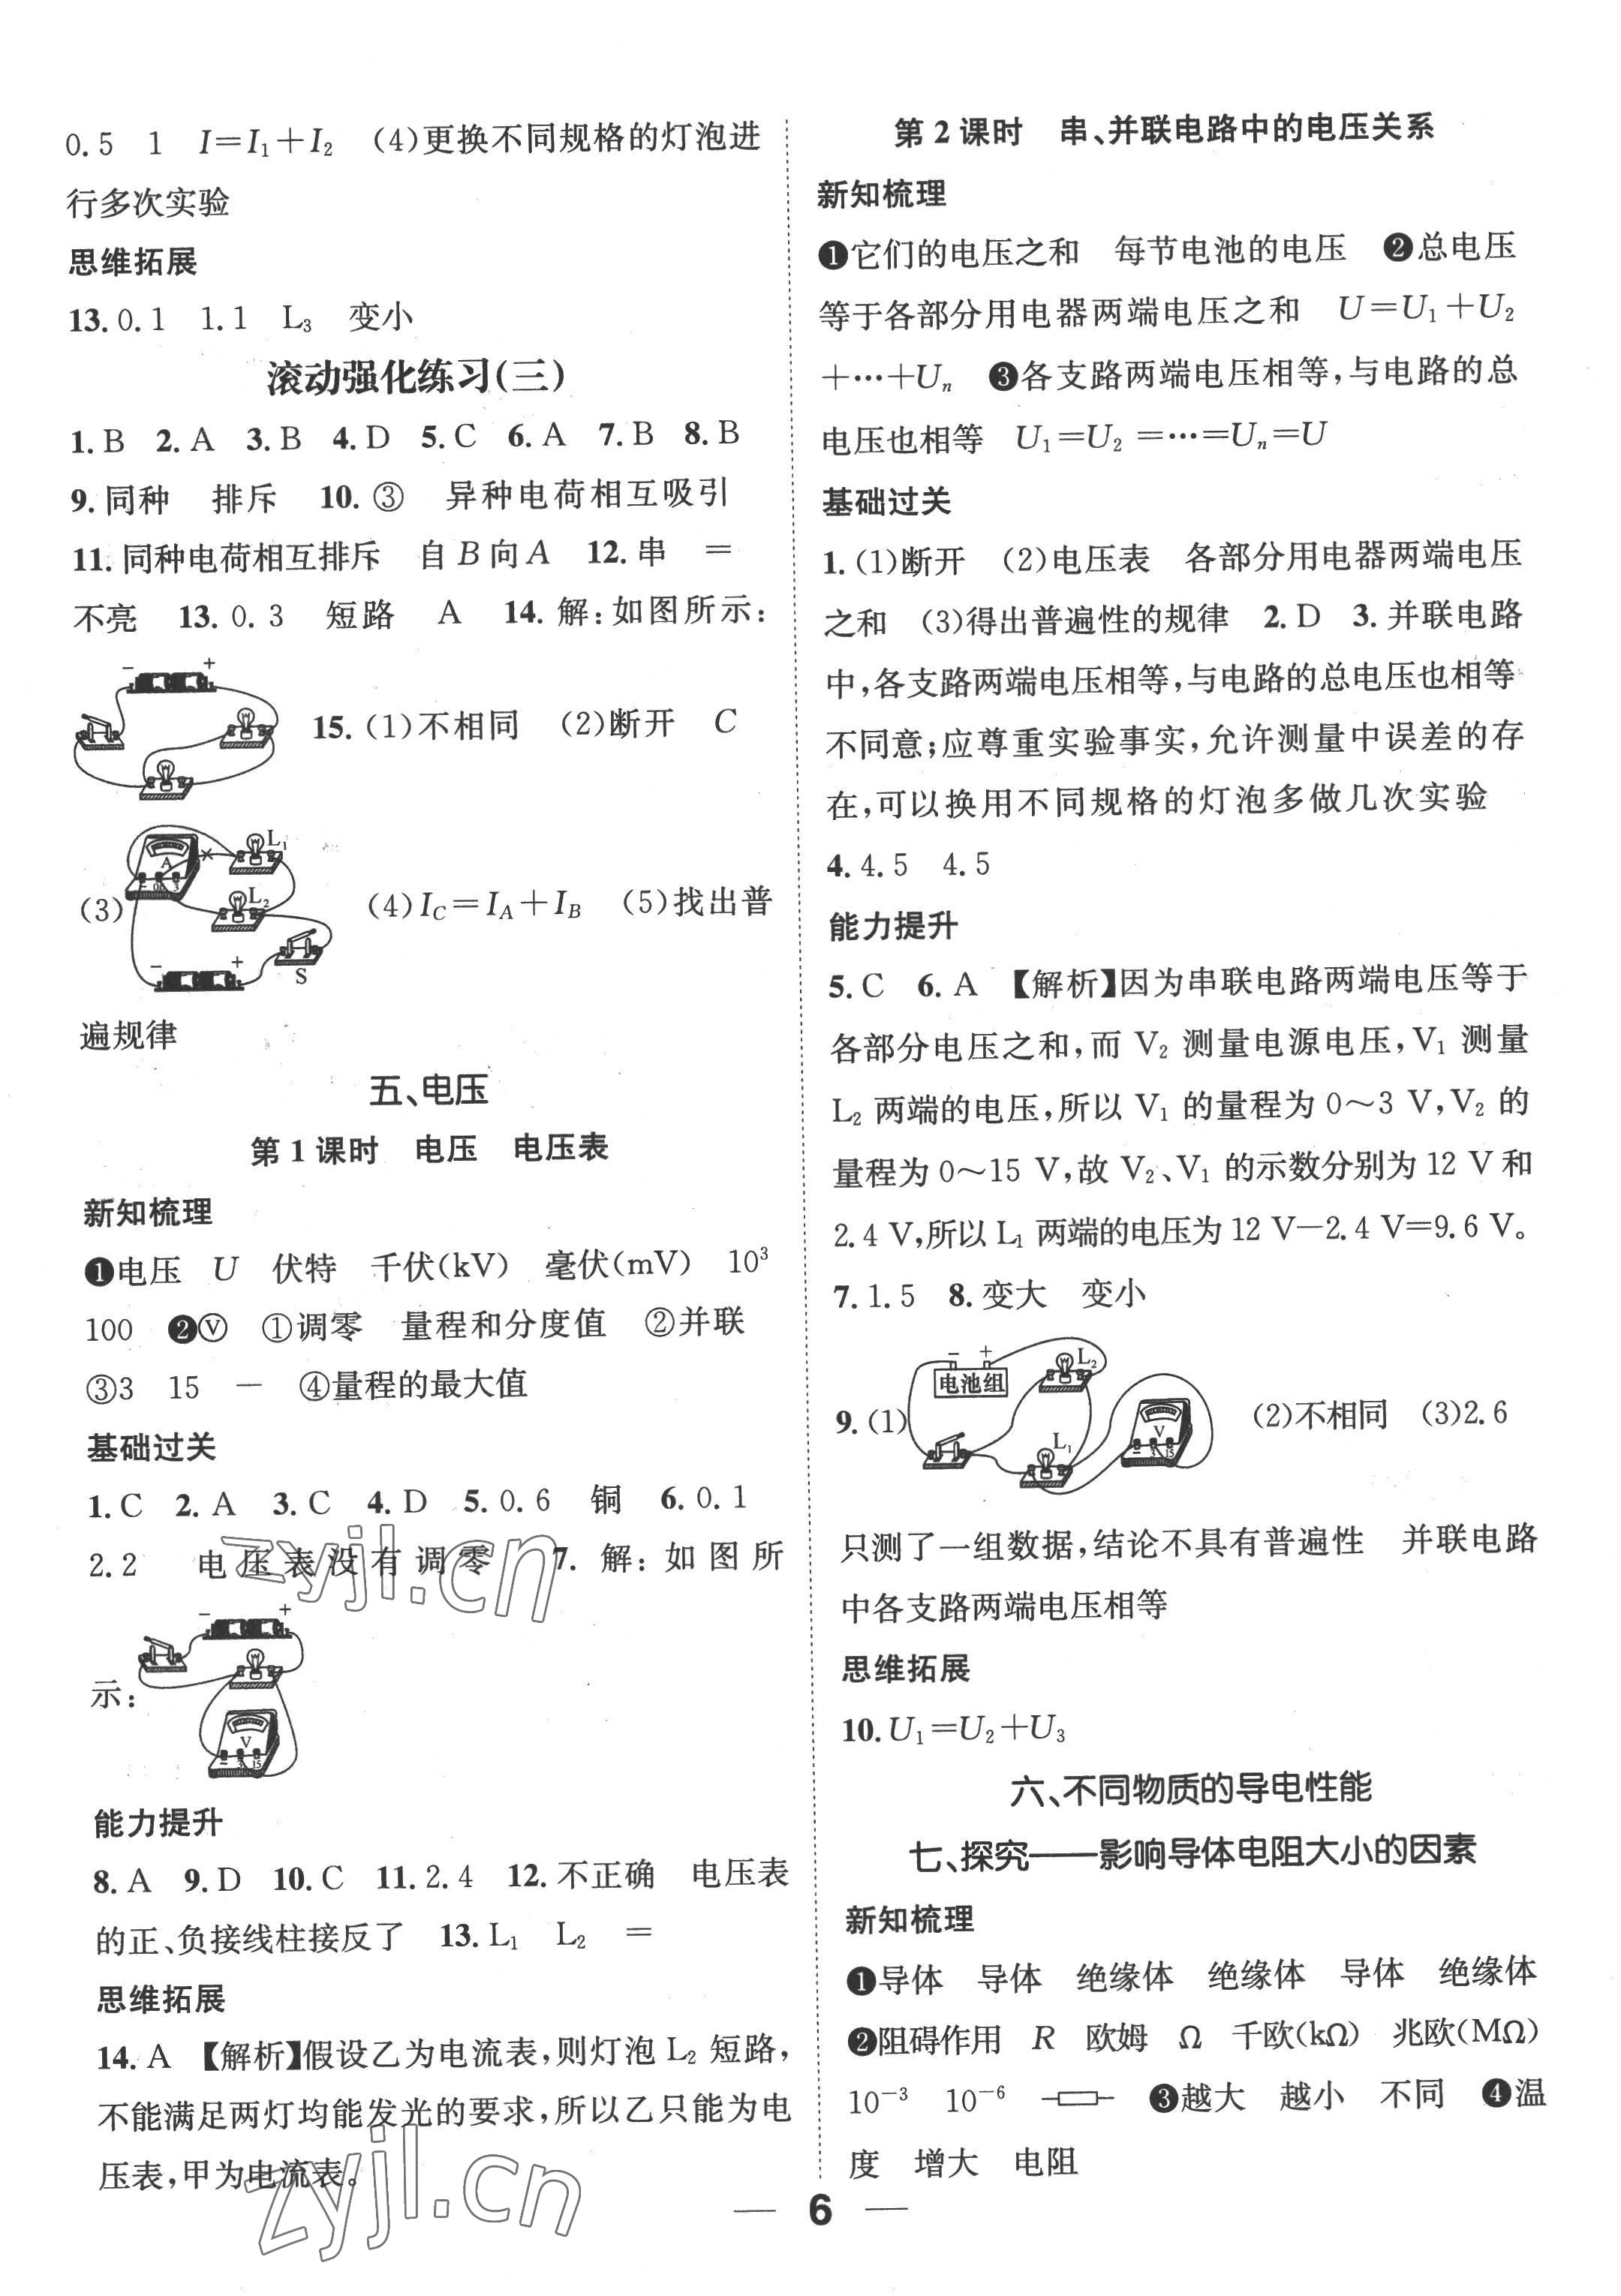 0.5 1 I=I₁+I₂ (4)更换不同规格的灯泡进
行多次实验
思维拓展
13.0.1 1.1 L₃ 变小
滚动强化练习(三)
1.B 2.A 3.B 4.D 5.C 6.A 7.B 8.B
9.同种 排斥 10.③ 异种电荷相互吸引
11.同种电荷相互排斥 自B向A 12.串 =
不亮 13.0.3 短路 A 14.解:如图所示:
− +
15.(1)不相同 (2)断开 C
(3)
A
− 0.6 3
L₁
L₂
− +
S
(4)I_C=I_A+I_B (5)找出普
遍规律
五、电压
第1课时 电压 电压表
新知梳理
❶电压 U 伏特 千伏(kV) 毫伏(mV) 10³
100 ❷Ⓥ ①调零 量程和分度值 ②并联
③3 15 − ④量程的最大值
基础过关
1.C 2.A 3.C 4.D 5.0.6 铜 6.0.1
2.2 电压表没有调零 7.解:如图所
示:
− +
V
− 3 15
能力提升
8.A 9.D 10.C 11.2.4 12.不正确 电压表
的正、负接线柱接反了 13.L₁ L₂ =
思维拓展
14.A 【解析】假设乙为电流表,则灯泡L₂短路,
不能满足两灯均能发光的要求,所以乙只能为电
压表,甲为电流表。
第2课时 串、并联电路中的电压关系
新知梳理
❶它们的电压之和 每节电池的电压 ❷总电压
等于各部分用电器两端电压之和 U=U₁+U₂
+…+Uₙ ❸各支路两端电压相等,与电路的总
电压也相等 U₁=U₂=…=Uₙ=U
基础过关
1.(1)断开 (2)电压表 各部分用电器两端电压
之和 (3)得出普遍性的规律 2.D 3.并联电路
中,各支路两端电压相等,与电路的总电压也相等
不同意;应尊重实验事实,允许测量中误差的存
在,可以换用不同规格的灯泡多做几次实验
4.4.5 4.5
能力提升
5.C 6.A 【解析】因为串联电路两端电压等于
各部分电压之和,而V₂测量电源电压,V₁测量
L₂两端的电压,所以V₁的量程为0～3 V,V₂的
量程为0～15 V,故V₂、V₁的示数分别为12 V和
2.4 V,所以L₁两端的电压为12 V−2.4 V=9.6 V。
7.1.5 8.变大 变小
9.(1)
− +
电池组
L₂
L₁
V
− 3 15
(2)不相同 (3)2.6
只测了一组数据,结论不具有普遍性 并联电路
中各支路两端电压相等
思维拓展
10.U₁=U₂+U₃
六、不同物质的导电性能
七、探究——影响导体电阻大小的因素
新知梳理
❶导体 导体 绝缘体 绝缘体 导体 绝缘体
❷阻碍作用 R 欧姆 Ω 千欧(kΩ) 兆欧(MΩ)
10⁻³ 10⁻⁶ ❸越大 越小 不同 ❹温
度 增大 电阻
— 6 —
zyjl.cn
zyjl.cn